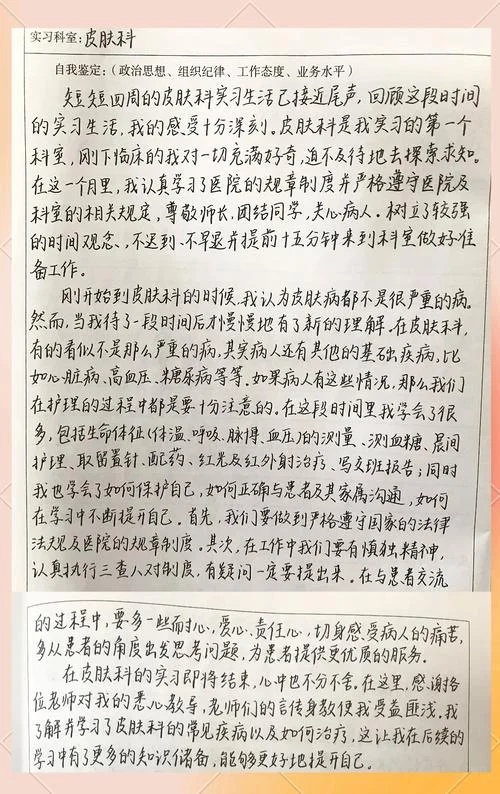 实习科室:皮肤科
自我鉴定:(政治思想、组织纪律、工作态度、业务水平)
短短四周的皮肤科实习生活已接近尾声,回顾这段时间
的实习生活,我的感受十分深刻。皮肤科是我实习的第一个
科室,刚下临床的我对一切充满好奇,迫不及待地去探索求知。
在这一个月里,我认真学习了医院的规章制度并严格遵守医院及
科室的相关规定,尊敬师长、团结同学,关心病人。树立了较强
的时间观念、不迟到、不早退并提前十五分钟来到科室做好准
备工作。
刚开始到皮肤科的时候,我认为皮肤病都不是很严重的病。
然而,当我待了一段时间后才慢慢地有了新的理解。在皮肤科,
有的看似不是那么严重的病,其实病人还有其他的基础疾病,比
如心脏病、高血压、糖尿病等等。如果病人有这些情况,那么我们
在护理的过程中都是要十分注意的。在这段时间里我学会了很
多,包括生命体征(体温、呼吸、脉博、血压)的测量、测血糖、晨间
护理、取留置针、配药、红光及红外射治疗、写交班报告;同时
我也学会了如何保护自己,如何正确与患者及其家属沟通,如何
在学习中不断提升自己。首先,我们要做到严格遵守国家的法律
法规及医院的规章制度。其次,在工作中我们要有慎独精神,
认真执行三查八对制度,有疑问一定要提出来。在与患者交流
的过程中,要多一些耐心、爱心、责任心,切身感受病人的痛苦,
多从患者的角度出发思考问题,为患者提供更优质的服务。
在皮肤科的实习即将结束,心中也不分不舍。在这里,感谢各
位老师对我的悉心教导,老师们的言传身教使我受益匪浅。我
了解并学习了皮肤科的常见疾病以及如何治疗,这让我在后续的
学习中有了更多的知识储备,能够更好地提升自己。